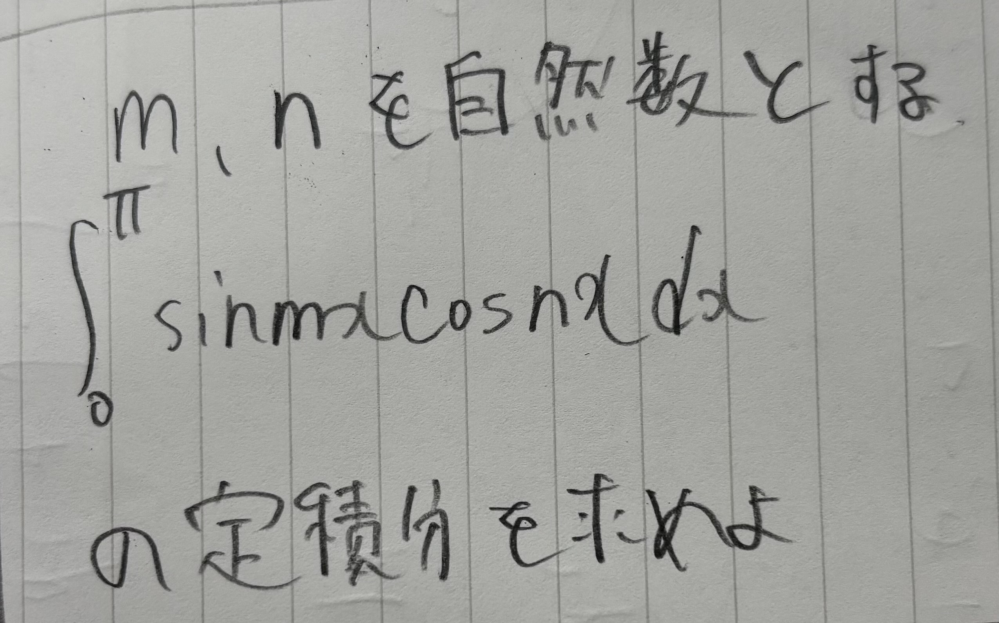 m、nを自然数とする.
∫₀^π sinmx cosnx dx
の定積分を求めよ